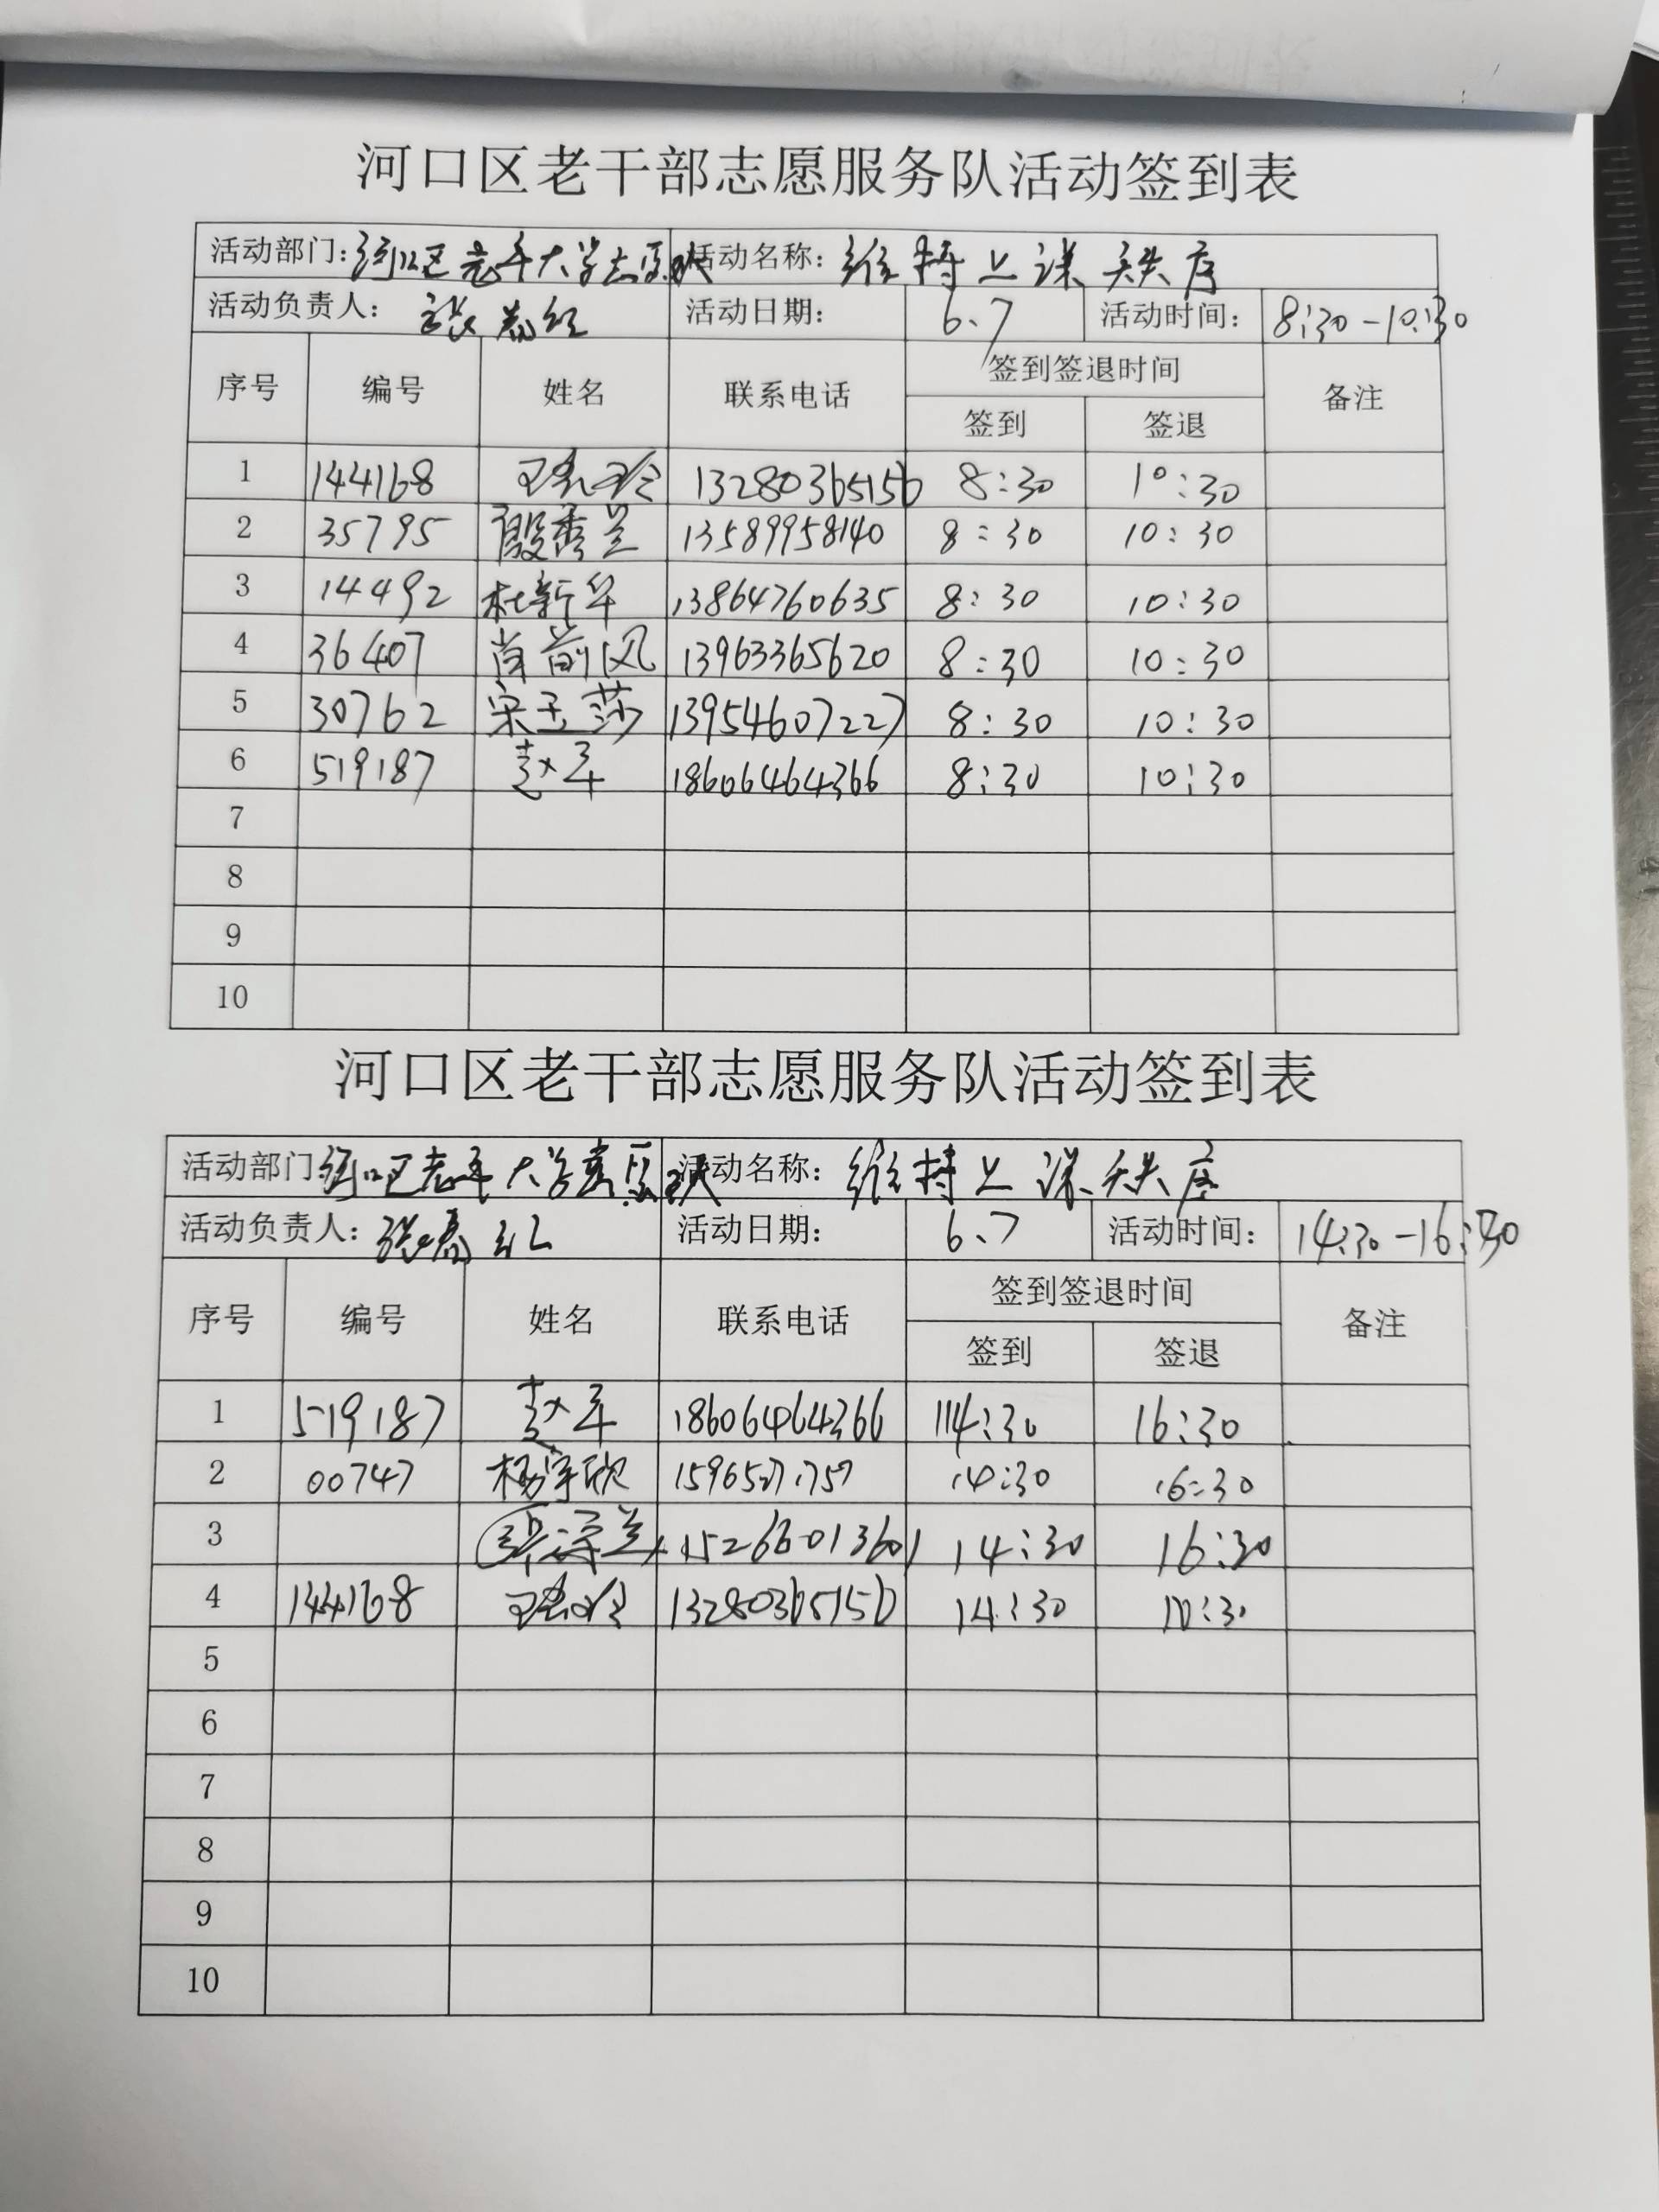 河口区老干部志愿服务队活动签到表
活动部门：河口区老年大学志愿队 活动名称：维持上课秩序
活动负责人：张春红 活动日期： 6.7 活动时间： 8:30-10:30
序号 编号 姓名 联系电话 签到签退时间 备注
签到 签退
1 144168 13280365156 8:30 10:30
2 35795 殷秀兰 13589958140 8:30 10:30
3 14492 杜新华 13864760635 8:30 10:30
4 36407 肖前风 13963365620 8:30 10:30
5 30762 宋玉莎 13954607227 8:30 10:30
6 519187 赵军 18606464366 8:30 10:30
7
8
9
10
河口区老干部志愿服务队活动签到表
活动部门 河口区老年大学志愿队 活动名称：维持上课秩序
活动负责人：张春红 活动日期： 6.7 活动时间： 14:30-16:30
序号 编号 姓名 联系电话 签到签退时间 备注
签到 签退
1 519187 赵军 18606464366 14:30 16:30
2 00747 杨宇欣 14:30 16:30
3 15266013601 14:30 16:30
4 144168 13280365156 14:30
5
6
7
8
9
10